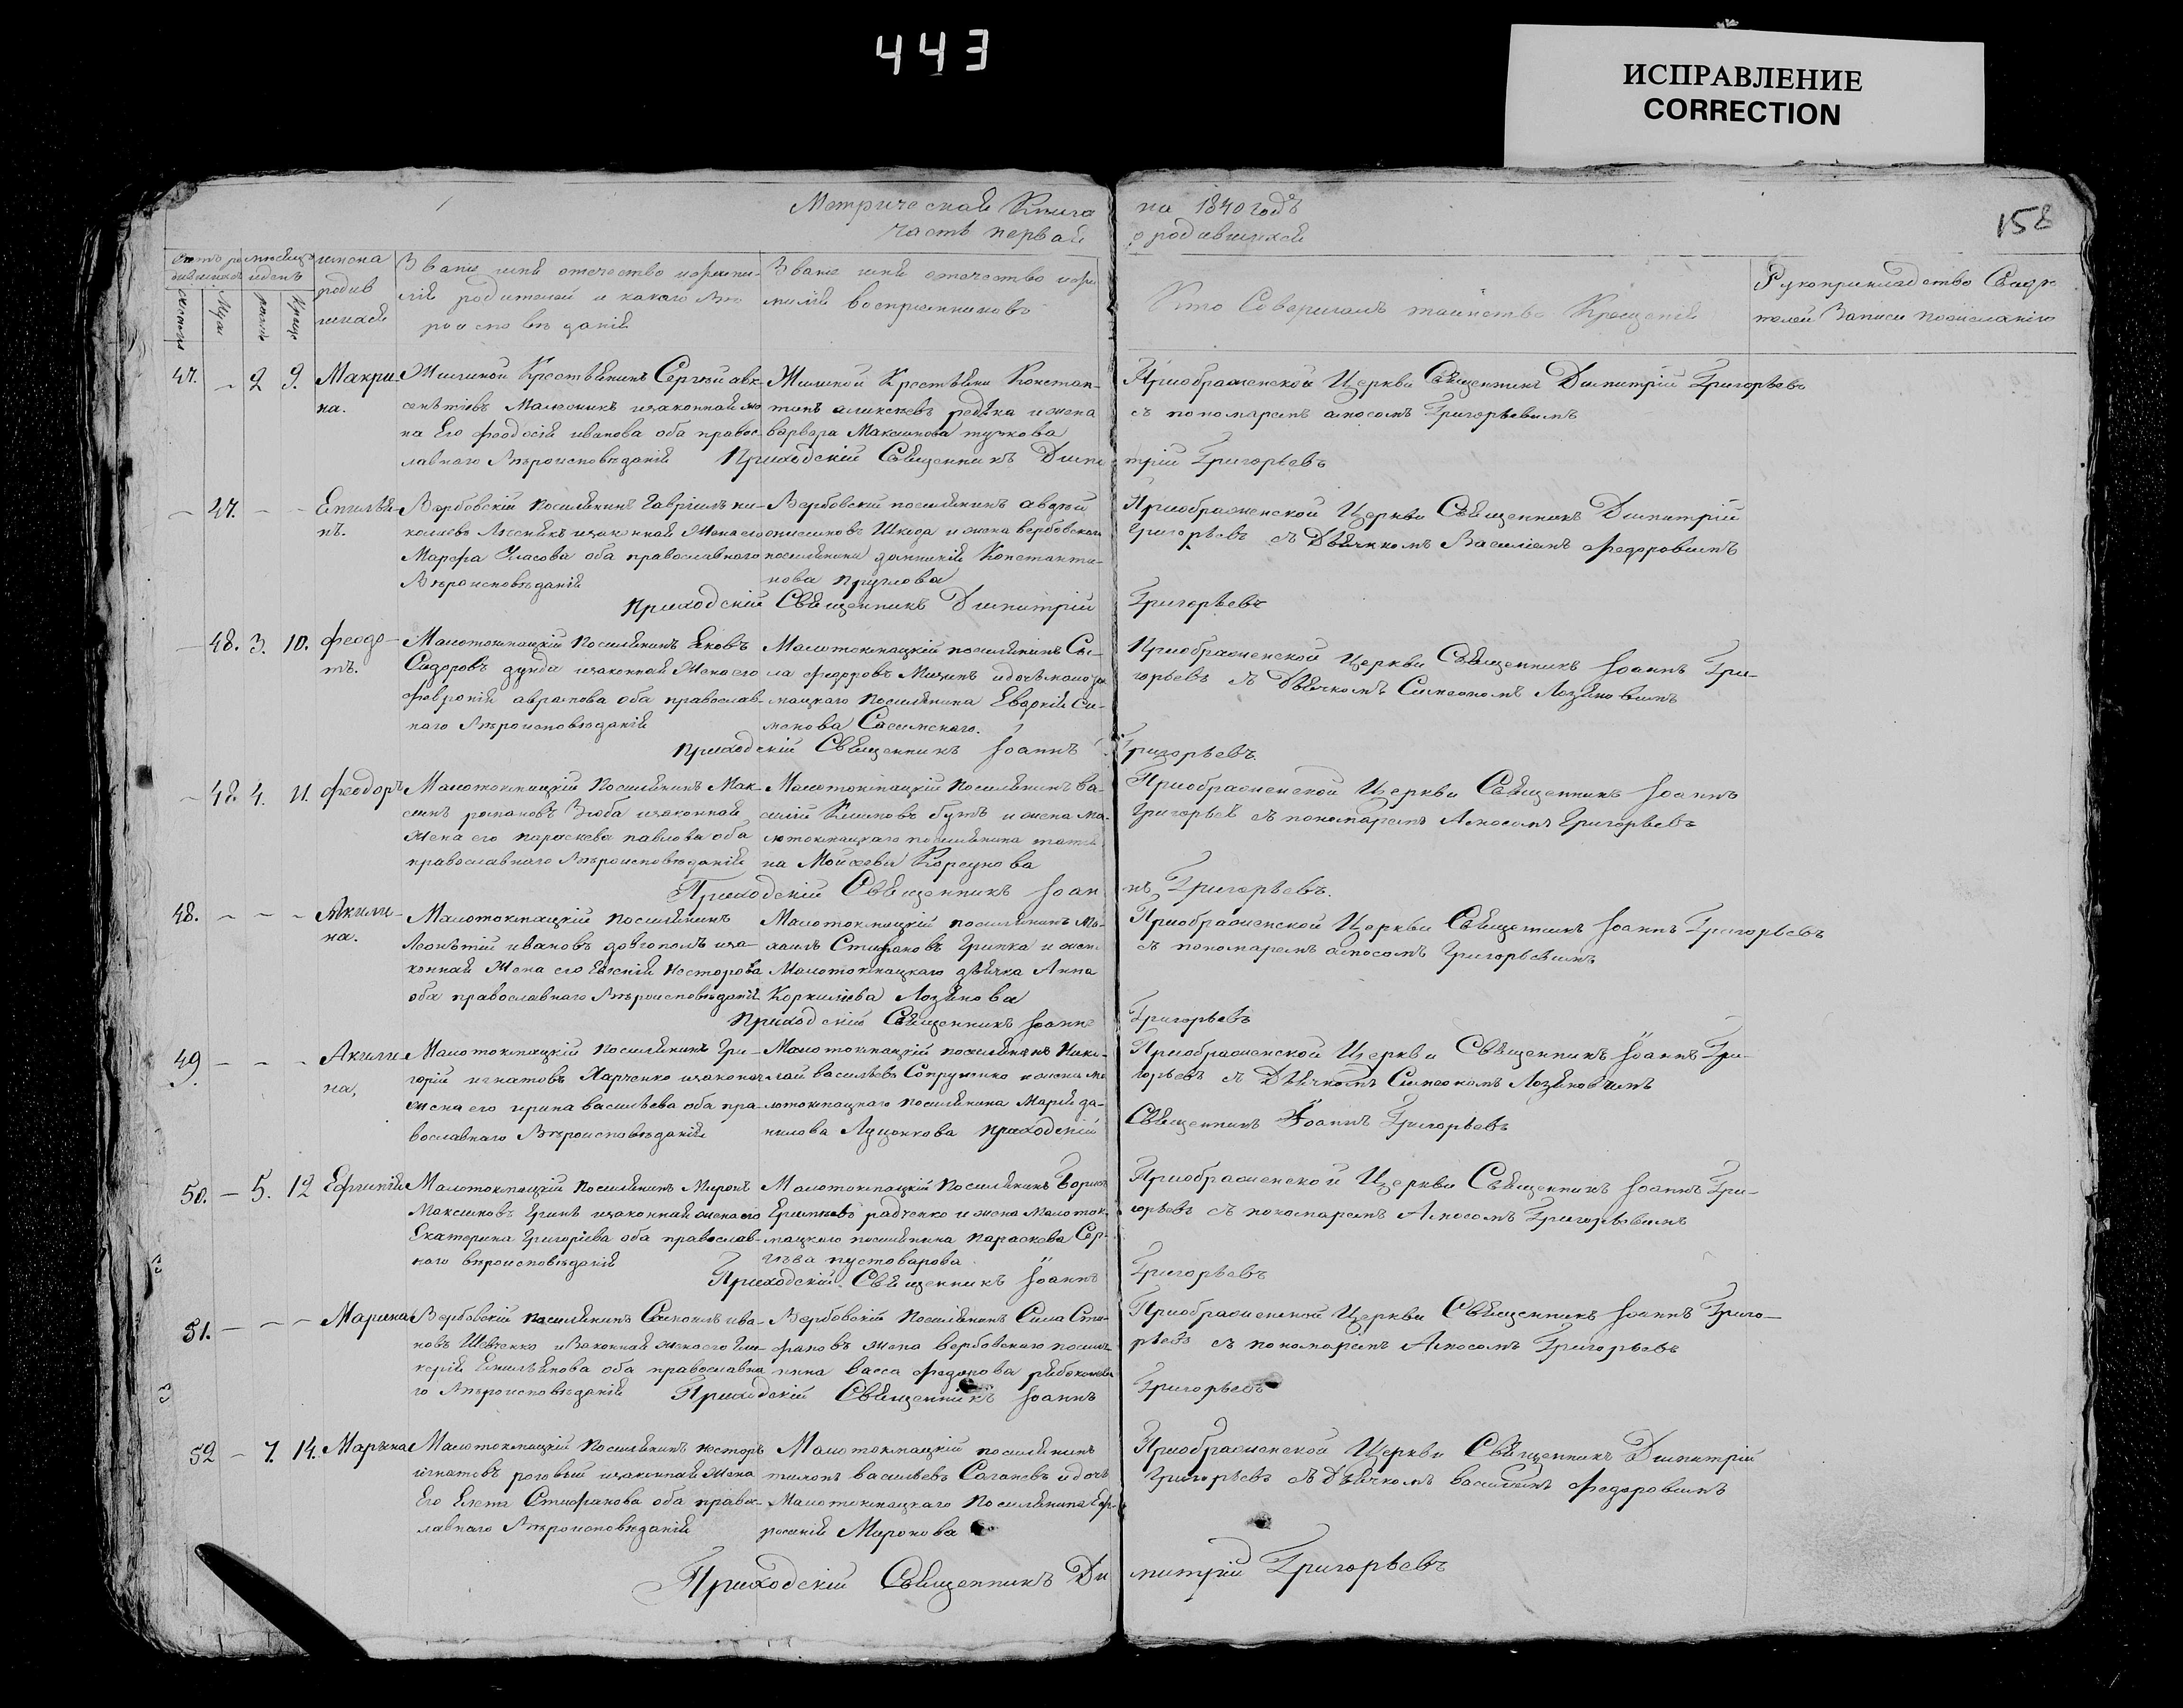 443
ИСПРАВЛЕНИЕ
CORRECTION
158
Метрическая Книга на 1840 годъ
часть первая о родившихся
имена
родив
шихся
Званіе имя отечество и фами-
лія родителей и какого вѣ-
роисповѣданія
Званіе имя отечество и фа
милія воспріемниковъ
Кто Совершалъ таинство Крещенія
Рукоприкладство Свидѣ
телей Записи по
47. - 2 9. Макри-
на.
Крестьянинъ Сергѣй авк-
сентіевъ изаконная же
на Его феодосія иванова оба правос-
лавнаго Вѣроисповѣданія
Крестьянинъ Констан-
тинъ редька и жена
варвара Максимова
Приображенской Церкви Священникъ Димитрій Григорьевъ
съ пономаремъ амосомъ Григорьевымъ
Приходскій Священникъ Дими трій Григорьевъ
- 47. - - Емилья-
нъ.
Вербовскій поселянинъ Гавріилъ ни-
колаевъ изаконная Жена его
Марфа Власова оба православнаго
Вѣроисповѣданія
Вербовскій поселянинъ авдѣй
Шкода и жена вербовскаго
поселянина Константи-
нова Круглова
Приображенской Церкви Священникъ Димитрій
Григорьевъ съ Дьячкомъ Василіемъ Федоровымъ
Приходскій Священникъ Димитрій Григорьевъ
- 48. 3. 10. феодо-
тъ.
Малотокмацкій Поселянинъ Яковъ
Сидоровъ дзюба изаконная Жена его
февронія аврамова оба православ-
наго Вѣроисповѣданія
Малотокмацкій поселянинъ Са-
ва федоровъ и дочь малото
кмацкаго поселянина Евдокія Си-
менова
Приображенской Церкви Священникъ Іоаннъ Гри-
горьевъ съ Дьячкомъ Симеономъ Лозяновымъ
Приходскій Священникъ Іоаннъ Григорьевъ.
- 48. 4. 11. феодоръ
Малотокмацкій Поселянинъ Мак-
симъ романовъ Зюба изаконная
Жена его параскева павлова оба
православнаго Вѣроисповѣданія
Малотокмацкій Поселянинъ Ва-
силій Климовъ бутъ и жена ма-
лотокмацкаго поселянина татія
на
Приображенской Церкви Священникъ Іоаннъ
Григорьевъ съ пономаремъ Амосомъ Григорьевъ
Приходскій Священникъ Іоан нъ Григорьевъ.
48. - - - Акили-
на.
Малотокмацкій поселянинъ
Леонтій ивановъ довгополъ иза-
конная Жена его Евгенія Несторова
оба православнаго Вѣроисповѣданія
Малотокмацкій поселянинъ Ми-
хаилъ Стифановъ Гринка и жена
Малотокмацкаго дьячка Анна
Корнилиева Лозянова
Приображенской Церкви Священникъ Іоаннъ Григорьевъ
съ пономаремъ амосомъ Григорьевымъ
Приходскій Священникъ Іоаннъ Григорьевъ
49 - - - Акили-
на,
Малотокмацкій поселянинъ Гри-
горій игнатовъ Харченко изаконая
Жена его ирина васильева оба пра-
вославнаго Вѣроисповѣданія
Малотокмацкій поселянинъ Нико-
лай васильевъ Сопруненко и жена ма
лотокмацкаго поселянина Марія да-
нилова Луценкова Приходскій
Приображенской Церкви Священникъ Іоаннъ Гри-
горьевъ съ Дьячкомъ Симеономъ Лозяновымъ
Священникъ Іоаннъ Григорьевъ
50. - 5. 12 Ефимія
Малотокмацкій поселянинъ Миронъ
Максимовъ изаконная жена его
Екатерина Григоріева оба православ-
наго вѣроисповѣданія
Малотокмацкій поселянинъ Борисъ
радченко и жена Малоток-
мацкаго поселянина параскева Сер-
гѣева пустоварова
Приображенской Церкви Священникъ Іоаннъ Гри-
горьевъ съ пономаремъ Амосомъ Григорьевымъ
Приходскій Священникъ Іоаннъ Григорьевъ
51. - - - Марина
Вербовскій поселянинъ Самоилъ ива-
новъ Шевченко изаконная жена его Гли-
керія Емильянова оба православна
го Вѣроисповѣданія
Вербовскій Поселянинъ Сила Сти-
фановъ жена вербовскаго поселя
нина васса федорова
Приображенской Церкви Священникъ Іоаннъ Григо-
рьевъ съ пономаремъ Амосомъ Григорьевъ
Приходскій Священникъ Іоаннъ Григорьевъ
52 - 7. 14. Марина
Малотокмацкій поселянинъ несторъ
игнатовъ роговый изаконная Жена
Его Елена Стифанова оба правос-
лавнаго Вѣроисповѣданія
Малотокмацкій поселянинъ
васильевъ и дочь
Малотокмацкаго поселянина Еф-
росинія Миронова
Приображенской Церкви Священникъ Димитрій
Григорьевъ съ Дьячкомъ василіемъ Федоровымъ
Приходскій Священникъ Ди митрій Григорьевъ